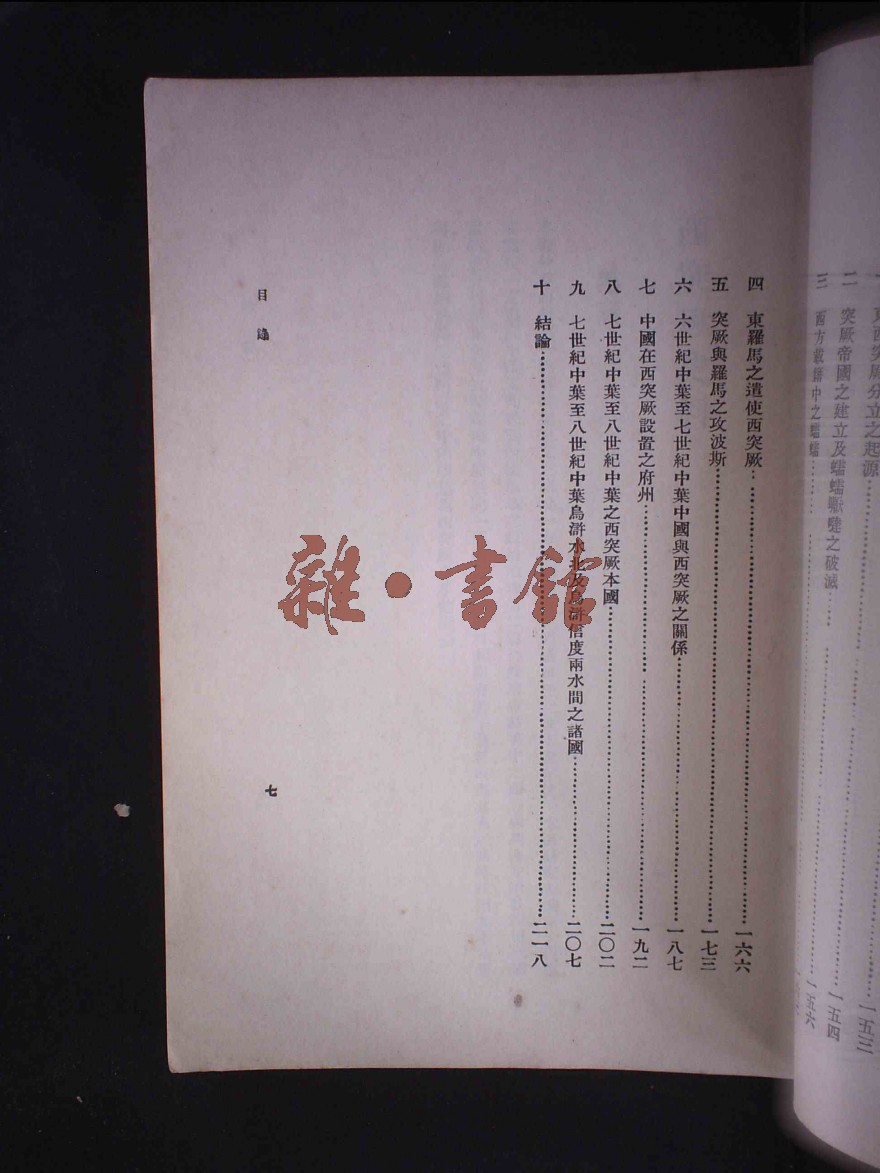 一 東西突厥分立之起源……一五三
二 突厥帝國之建立及蠕蠕嚈噠之破滅……一五四
三 西方載籍中之蠕蠕……一五六
四 東羅馬之遣使西突厥……一六六
五 突厥與羅馬之攻波斯……一七三
六 六世紀中葉至七世紀中葉中國與西突厥之關係……一八七
七 中國在西突厥設置之府州……一九二
八 七世紀中葉至八世紀中葉之西突厥本國……二〇二
九 七世紀中葉至八世紀中葉烏滸水北及烏滸信度兩水間之諸國……二〇七
十 結論……二一八
目錄
七
雜·書館